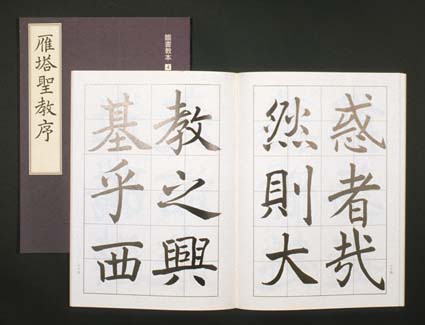 雁塔聖教序
臨書教本 4
惑者哉
然則大
教之興
基乎西